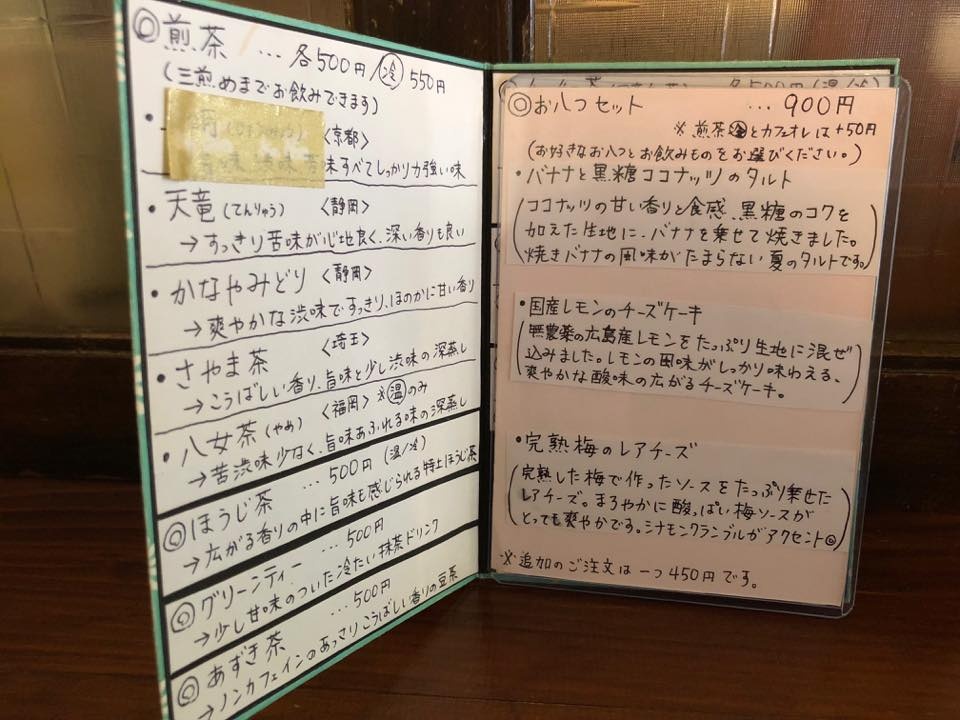 ◎煎茶 … 各500円/冷 550円
(三煎めまでお飲みできます)
<京都>
味すべてしっかり力強い味
・天竜(てんりゅう) <静岡>
→すっきり苦味が心地良く、深い香りも良い
・かなやみどり <静岡>
→爽やかな渋味ですっきり、ほのかに甘い香り
・さやま茶 <埼玉>
→こうばしい香り、旨味と少し渋味の深蒸し
・八女茶(やめ) <福岡> ※温のみ
→苦渋味少なく、旨味あふれる味の深蒸し
◎ほうじ茶 … 500円 (温/冷)
→広がる香りの中に旨味も感じられる特上ほうじ茶
◎グリーンティー … 500円
→少し甘味のついた冷たい抹茶ドリンク
◎あずき茶 … 500円
→ノンカフェインのあっさりこうばしい香りの豆茶
◎お八つセット … 900円
※煎茶冷とカフェオレは+50円
(お好きなお八つとお飲みものをお選びください。)
・バナナと黒糖ココナッツのタルト
(ココナッツの甘い香りと食感、黒糖のコクを
加えた生地に、バナナを乗せて焼きました。
焼きバナナの風味がたまらない夏のタルトです。)
・国産レモンのチーズケーキ
(無農薬の広島産レモンをたっぷり生地に混ぜ
込みました。レモンの風味がしっかり味わえる、
爽やかな酸味の広がるチーズケーキ。)
・完熟梅のレアチーズ
(完熟した梅で作ったソースをたっぷり乗せた
レアチーズ。まろやかに酸っぱい梅ソースが
とっても爽やかです。シナモンクランブルがアクセント◎)
※追加のご注文は一つ450円です。